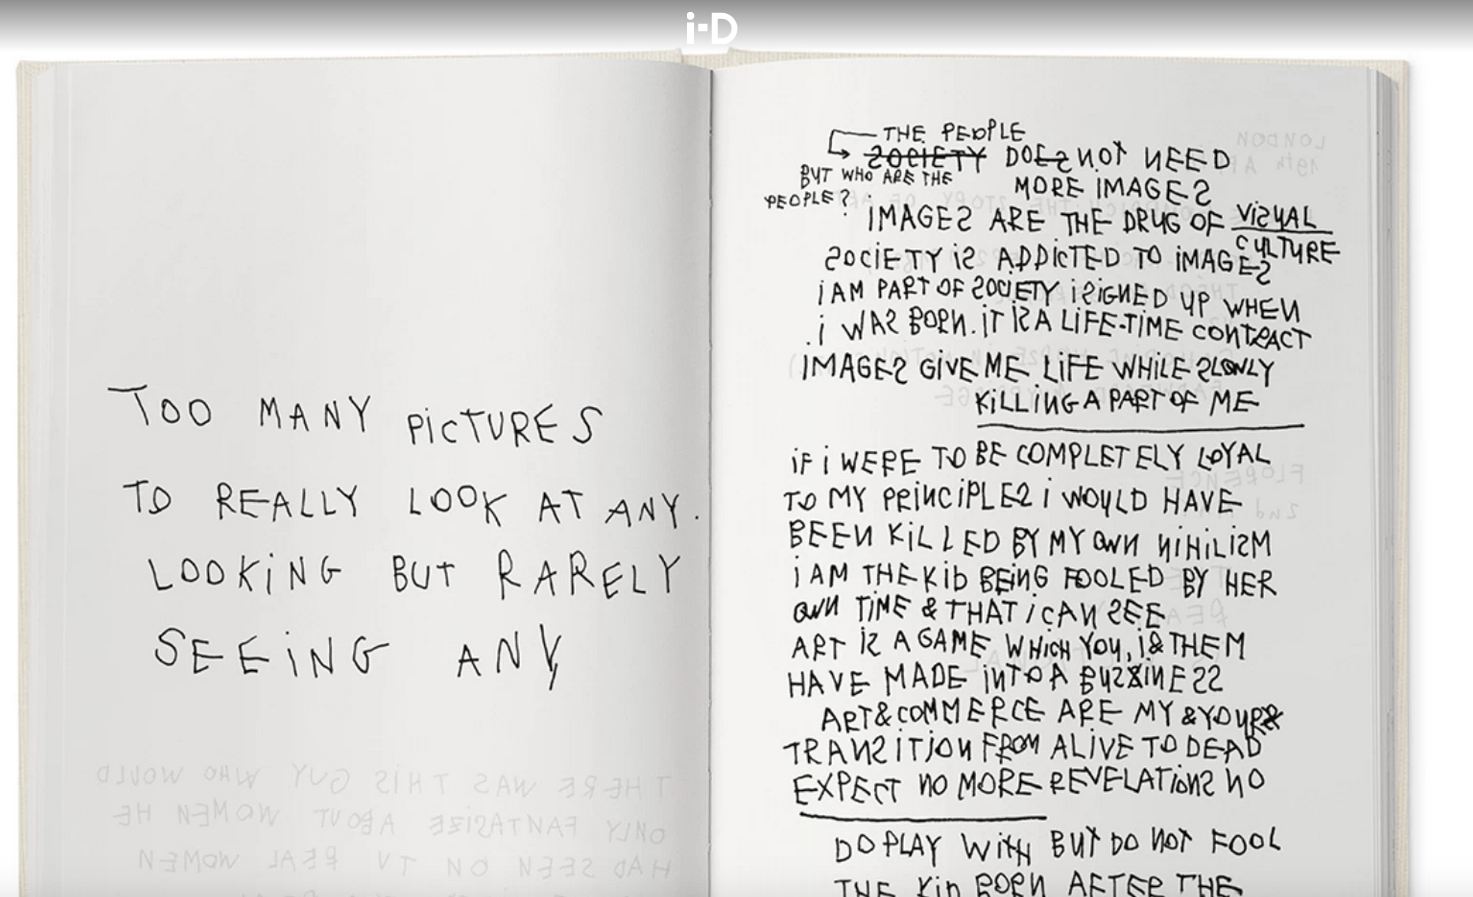 i-D
TOO MANY PiCTURES
TO REALLY LOOK AT ANY.
LOOKiNG BUT RARELY
SEEiNG ANY
THERE WAS THIS GUY WHO WOULD
ONLY FANTASISE ABOUT WOMEN HE
HAD SEEN ON TV REAL WOMEN
THE PEOPLE
SOCIETY DOES NOT NEED
BUT WHO ARE THE
PEOPLE?
MORE IMAGES
IMAGES ARE THE DRUG OF ViSUAL
CULTURE
SOCiETY iS ADDiCTED TO iMAGES
i AM PART OF SOCiETY i SiGNED UP WHEN
i WAS BORN. iT iS A LiFE-TiME CONTRACT
IMAGES GiVE ME LiFE WHiLE SLOWLY
KiLLiNG A PART OF ME
iF i WERE TO BE COMPLETELY LOYAL
TO MY PRiNCiPLES i WOULD HAVE
BEEN KiLLED BY MY OWN NiHiLiSM
i AM THE KiD BEiNG FOOLED BY HER
OWN TiME & THAT i CAN SEE
ART iS A GAME WHiCH YOU, i & THEM
HAVE MADE iNTO A BUSSiNESS
ART & COMMERCE ARE MY & YOURS
TRANSiTiON FROM ALiVE TO DEAD
EXPECT NO MORE REVELATiONS NO
DO PLAY WiTH BUT DO NOT FOOL
THE KiD BORN AFTER THE
LONDON
FLORENCE